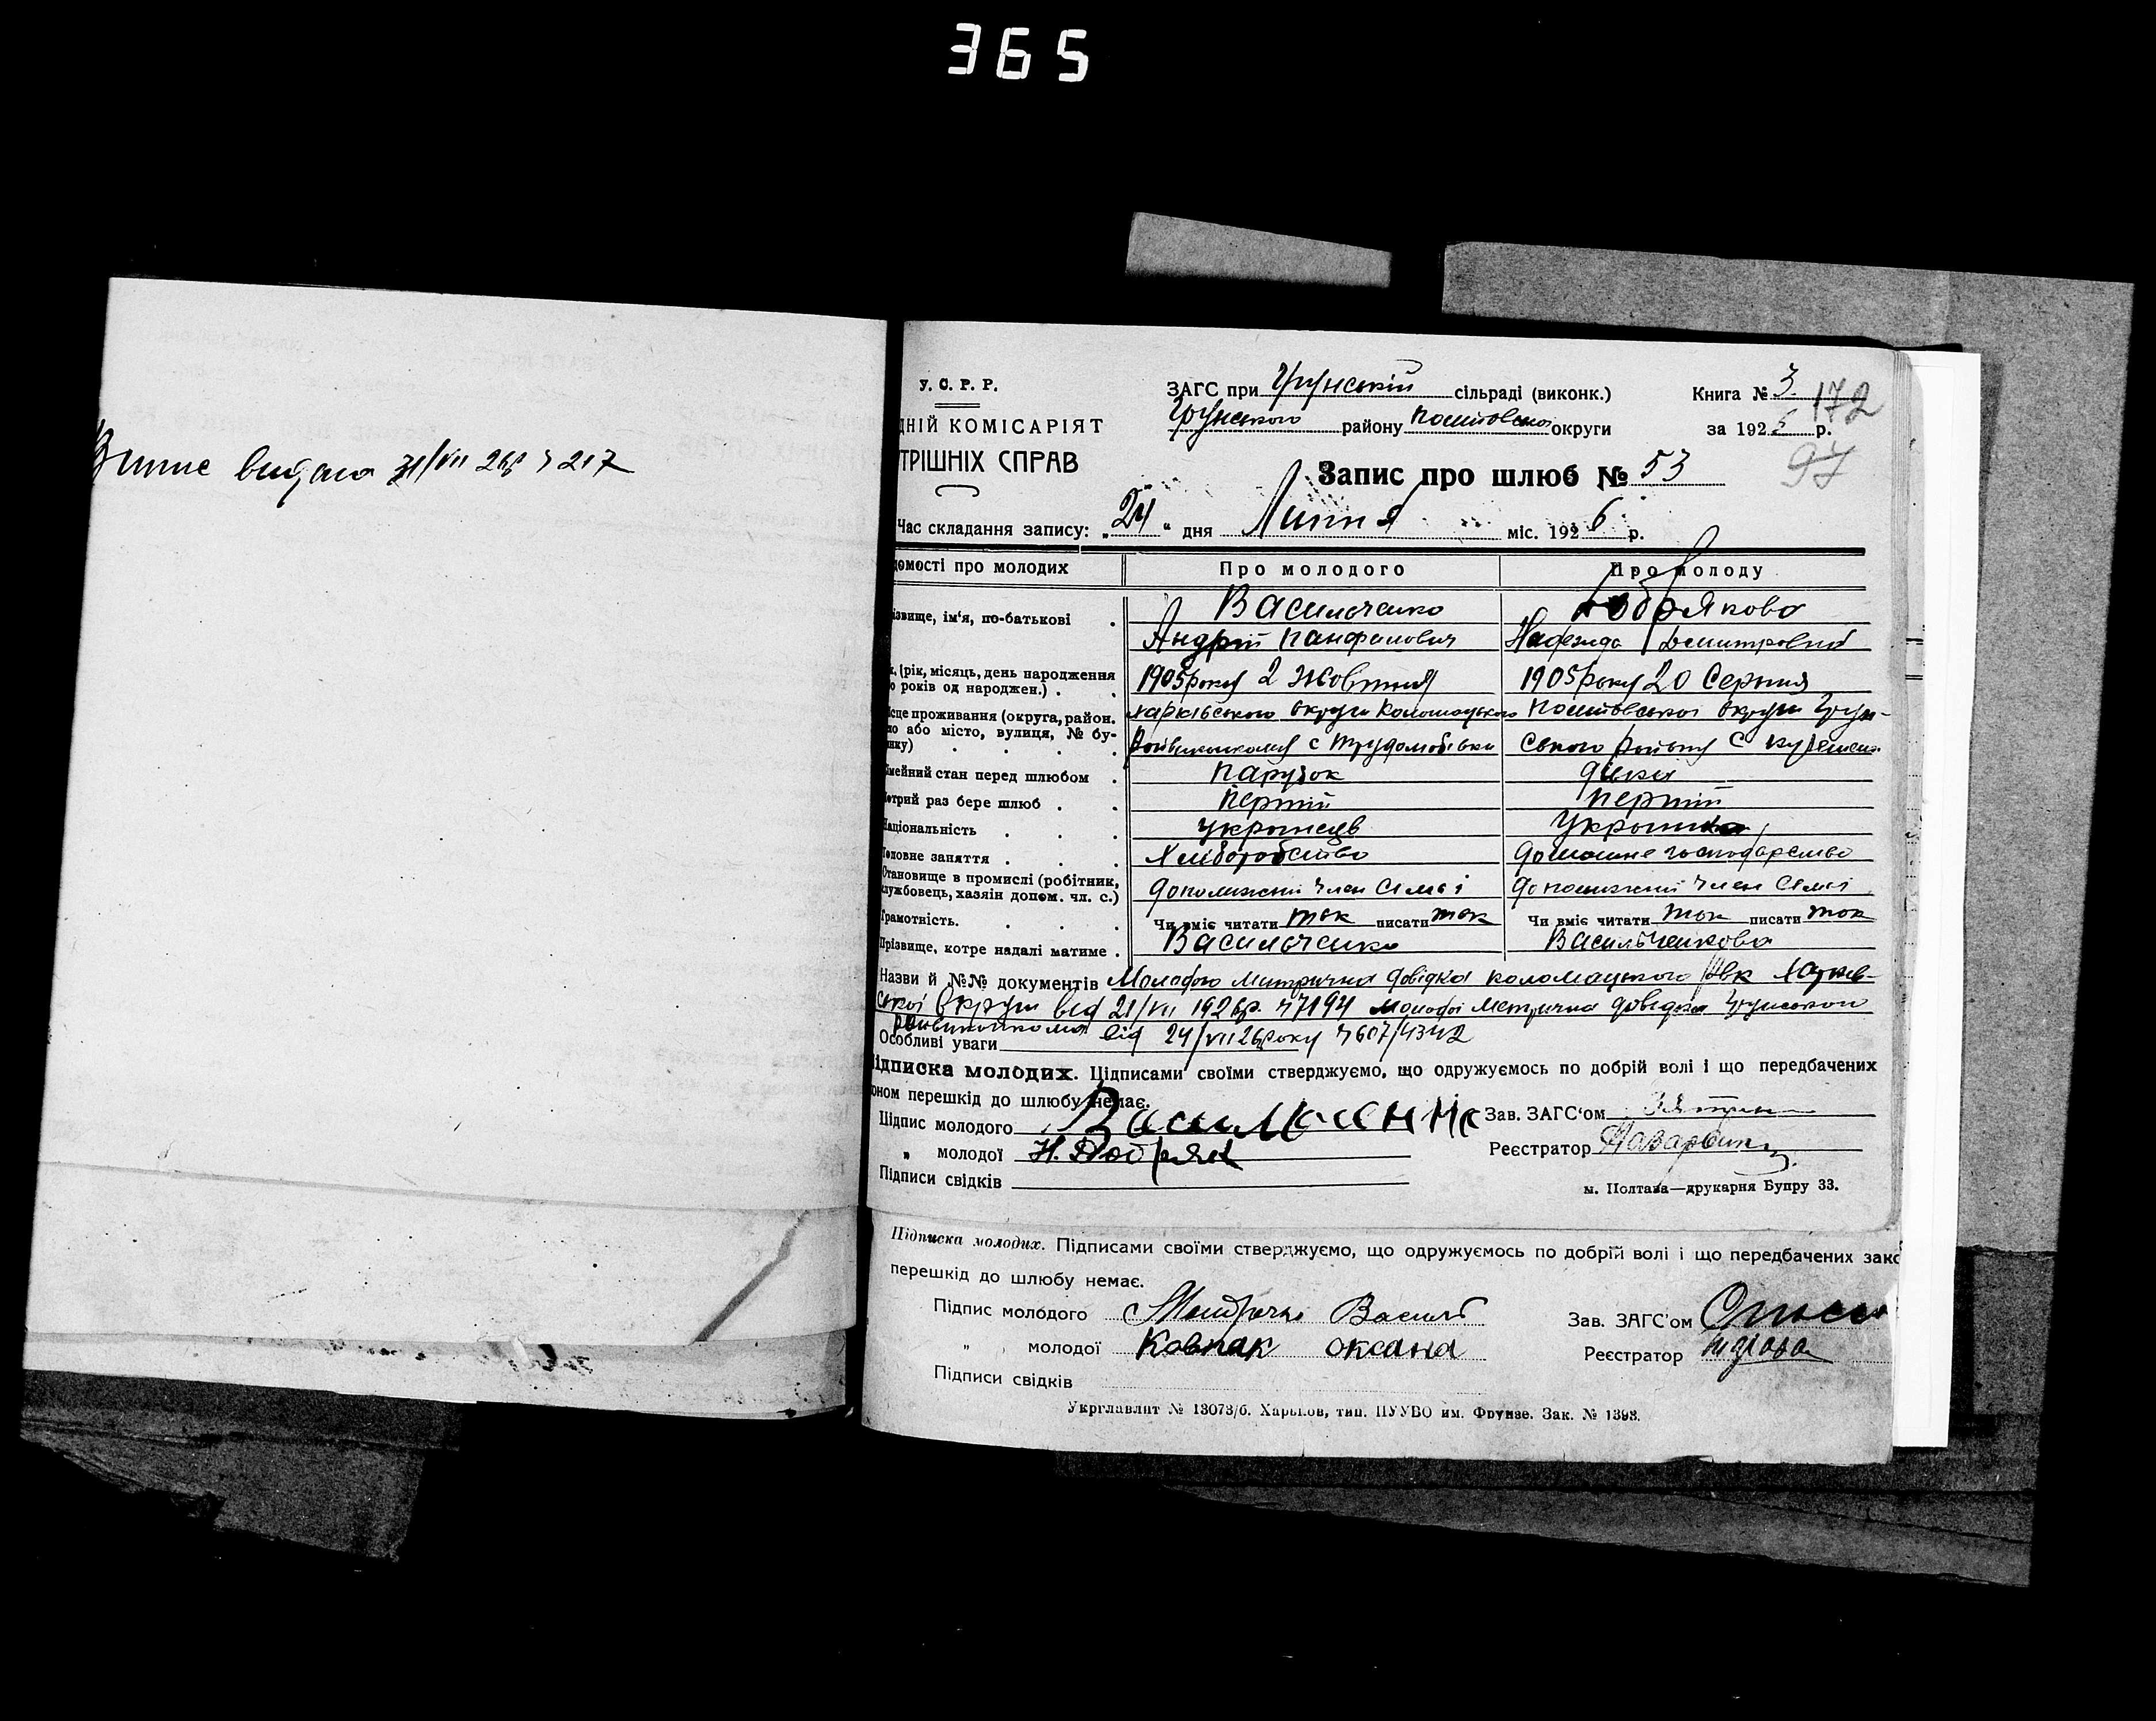 365
Випис видана 31/VII 26р № 217
У. С. Р. Р.
ДНІЙ КОМІСАРІЯТ
ТРІШНІХ СПРАВ
ЗАГС при Грунській сільраді (виконк.)
Грунського району округи
Книга № 3.
172
за 1926 р.
97
Запис про шлюб № 53
Час складання запису: „24“ дня Липня міс. 1926 р.
домості про молодих Про молодого Про молоду
ізвище, ім'я, по-батькові . Васильченко Добрякова
Андрій Панфилович Надежда Дмитровна
к. (рік, місяць, день народження
о років од народжен.) . . 1905 року 2 Жовтня 1905 року 20 Серпня
ісце проживання (округа, район.
но або місто, вулиця, № бу-
инку) . . . .
Харківського округи Коломацького Полтовської округи Грун-
Райвиконкому с ського району с
імейний стан перед шлюбом . Парубок дівка
отрий раз бере шлюб . . перший перший
Національність . . . українець Українка
Головне заняття . . . Хліборобство домашнє господарство
Становище в промислі (робітник,
службовець, хазяїн допом. чл. с.) допоміжний член сімьї допоміжний член сімьї
Грамотність. . . . Чи вміє читати так писати так Чи вміє читати так писати так
Прізвище, котре надалі матиме . Васильченко Васильченкова
Назви й №№ документів Молодого Метрична довідка Коломацького РВК Харків-
ської округи від 21/VII 1926р. №7194 молодої Метрична довідка Грунського
райвиконкома від 24/VII 26 року №607/4342
Особливі уваги
Підписка молодих. Підписами своїми стверджуємо, що одружуємось по добрій волі і що передбачених
оном перешкід до шлюбу немає.
Підпис молодого Васильченко Зав. ЗАГС'ом
„ молодої Н. Добряк Реєстратор
Підписи свідків
м. Полтава—друкарня Бупру 33.
Підписка молодих. Підписами своїми стверджуємо, що одружуємось по добрій волі і що передбачених зако
перешкід до шлюбу немає.
Підпис молодого Василь Зав. ЗАГС'ом
„ молодої Ковпак оксана Реєстратор
Підписи свідків
Укрглавлит № 13073/б. Харьков, тип. ПУУВО им. Фрунзе. Зак. № 1393.